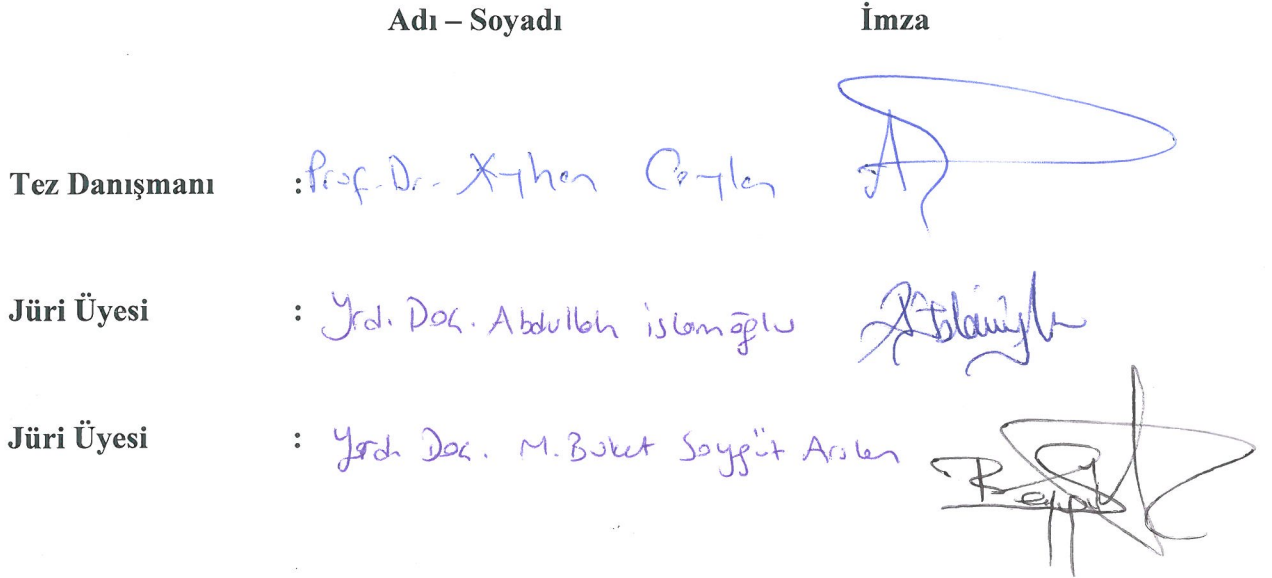 Adı – Soyadı İmza
Tez Danışmanı : Prof. Dr. Ayhan Ceylan
Jüri Üyesi : Yrd. Doç. Abdullah İslamoğlu
Jüri Üyesi : Yrd. Doç. M. Buket Soygüt Arslan